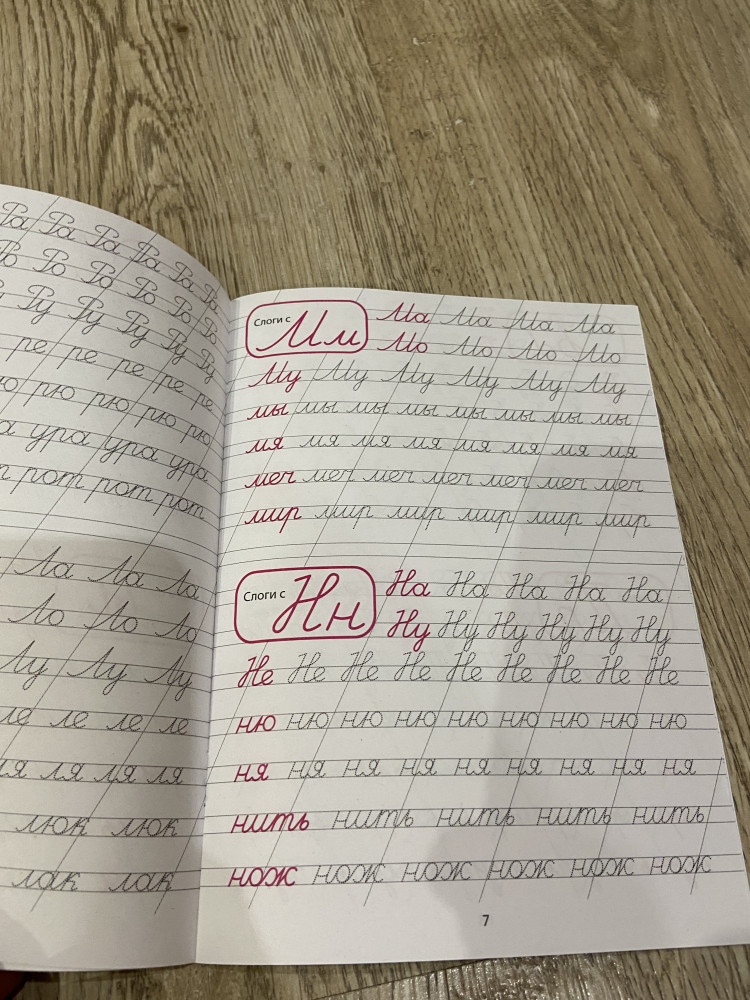 Ра Ра Ра Ра Ра Ра
Ро Ро Ро Ро Ро
Ру Ру Ру Ру Ру
ре ре ре ре ре
рю рю рю рю
ура ура ура
рот рот рот
Ла Ла Ла
Ло Ло Ло
Лу Лу Лу
ле ле ле
ля ля ля
люк люк
лак лак
Слоги с Мм
Ма Ма Ма Ма
Мо Мо Мо Мо
Му Му Му Му Му Му
мы мы мы мы мы мы мы мы
мя мя мя мя мя мя мя мя
меч меч меч меч меч меч меч
мир мир мир мир мир мир
Слоги с Нн
На На На На На
Ну Ну Ну Ну Ну Ну
Не Не Не Не Не Не Не Не Не
ню ню ню ню ню ню ню ню ню
ня ня ня ня ня ня ня ня ня
нить нить нить нить нить
нож нож нож нож нож нож
7